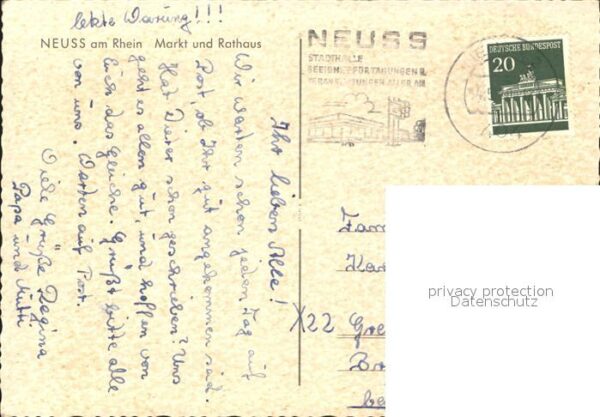 letzte Warnung!!!
NEUSS am Rhein Markt und Rathaus
Ihr lieben Alle!
Wir warten schon jeden Tag auf
Post, ob Ihr gut angekommen seid.
Hat Dieter schon geschrieben? Uns
geht es allen gut, und hoffen von
Euch das Gleiche. Grüßt bitte alle
von uns. Warten auf Post.
Viele Grüße Regina
Papa und Mutti
NEUSS
STADTHALLE
GEEIGNET F. TAGUNGEN U.
VERANSTALTUNGEN ALLER ART
DEUTSCHE BUNDESPOST
20
Fam
X22 Gre
privacy protection
Datenschutz